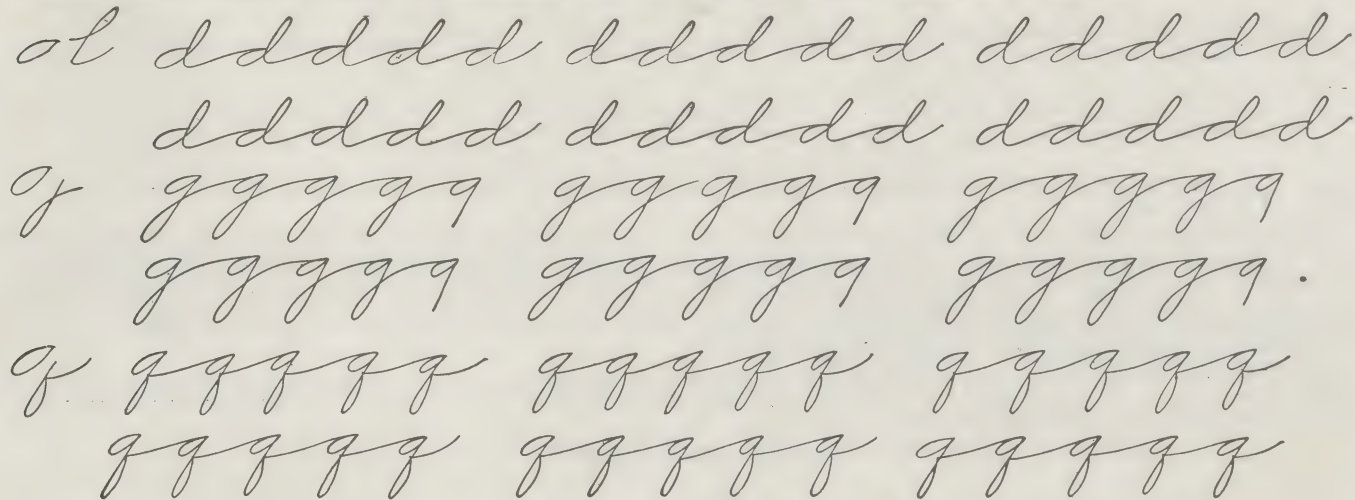 ol ddddd ddddd ddddd
ddddd ddddd ddddd
g ggggg ggggg ggggg
ggggg ggggg ggggg
q qqqqq qqqqq qqqqq
qqqqq qqqqq qqqqq